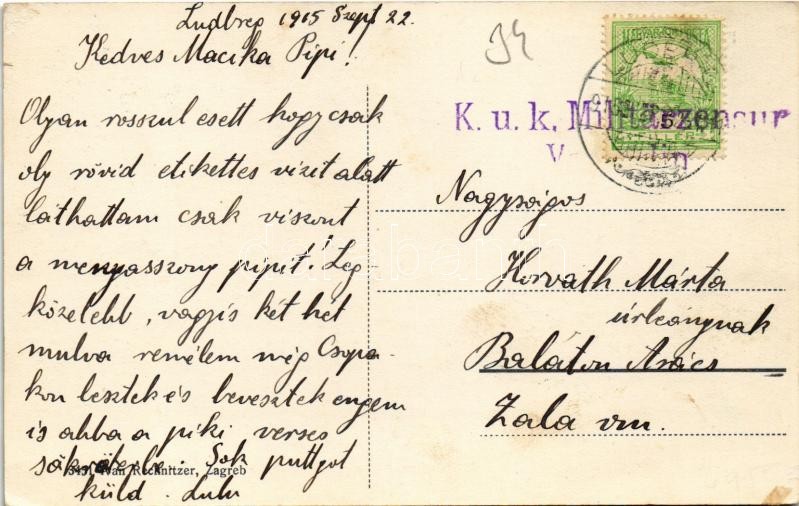 Ludbreg 1915 Szept 22.
Kedves Macika Pipi!
Olyan rosszul esett hogy csak
oly rövid etikettes vizit alatt
láthattam csak viszont
a menyasszony pipit! Leg
közelebb, vagyis két hét
mulva remélem még Csopa-
kon lesztek és bevesztek engem
is abba a piki verses
Sok puttyot
küld. Lulu
34
K. u. k. Militärzensur
V n
Nagyságos
Horváth Márta
úrleánynak
Balaton Arács
Zala vm.
Ivan Rechnitzer, Zagreb